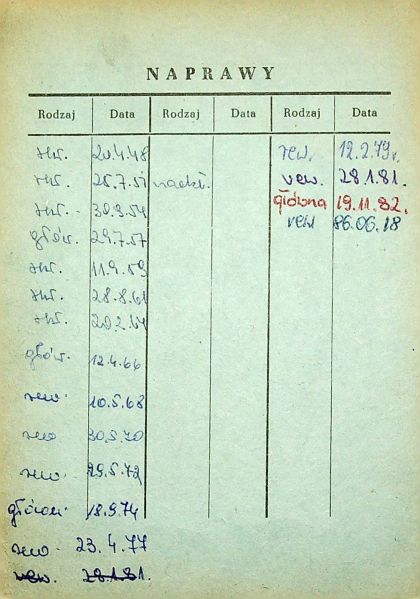 NAPRAWY
Rodzaj Data Rodzaj Data Rodzaj Data
20.4.48
25.7.51
30.9.54
głów. 29.7.57
11.9.59
28.8.61
20.2.64
głów. 12.4.66
rew. 10.5.68
rew. 30.5.70
rew. 29.5.72
18.9.74
rew. 23.4.77
rew. 28.1.81.
rew. 12.2.79r.
rew. 28.1.81.
główna 19.11.82.
rew 86.06.18